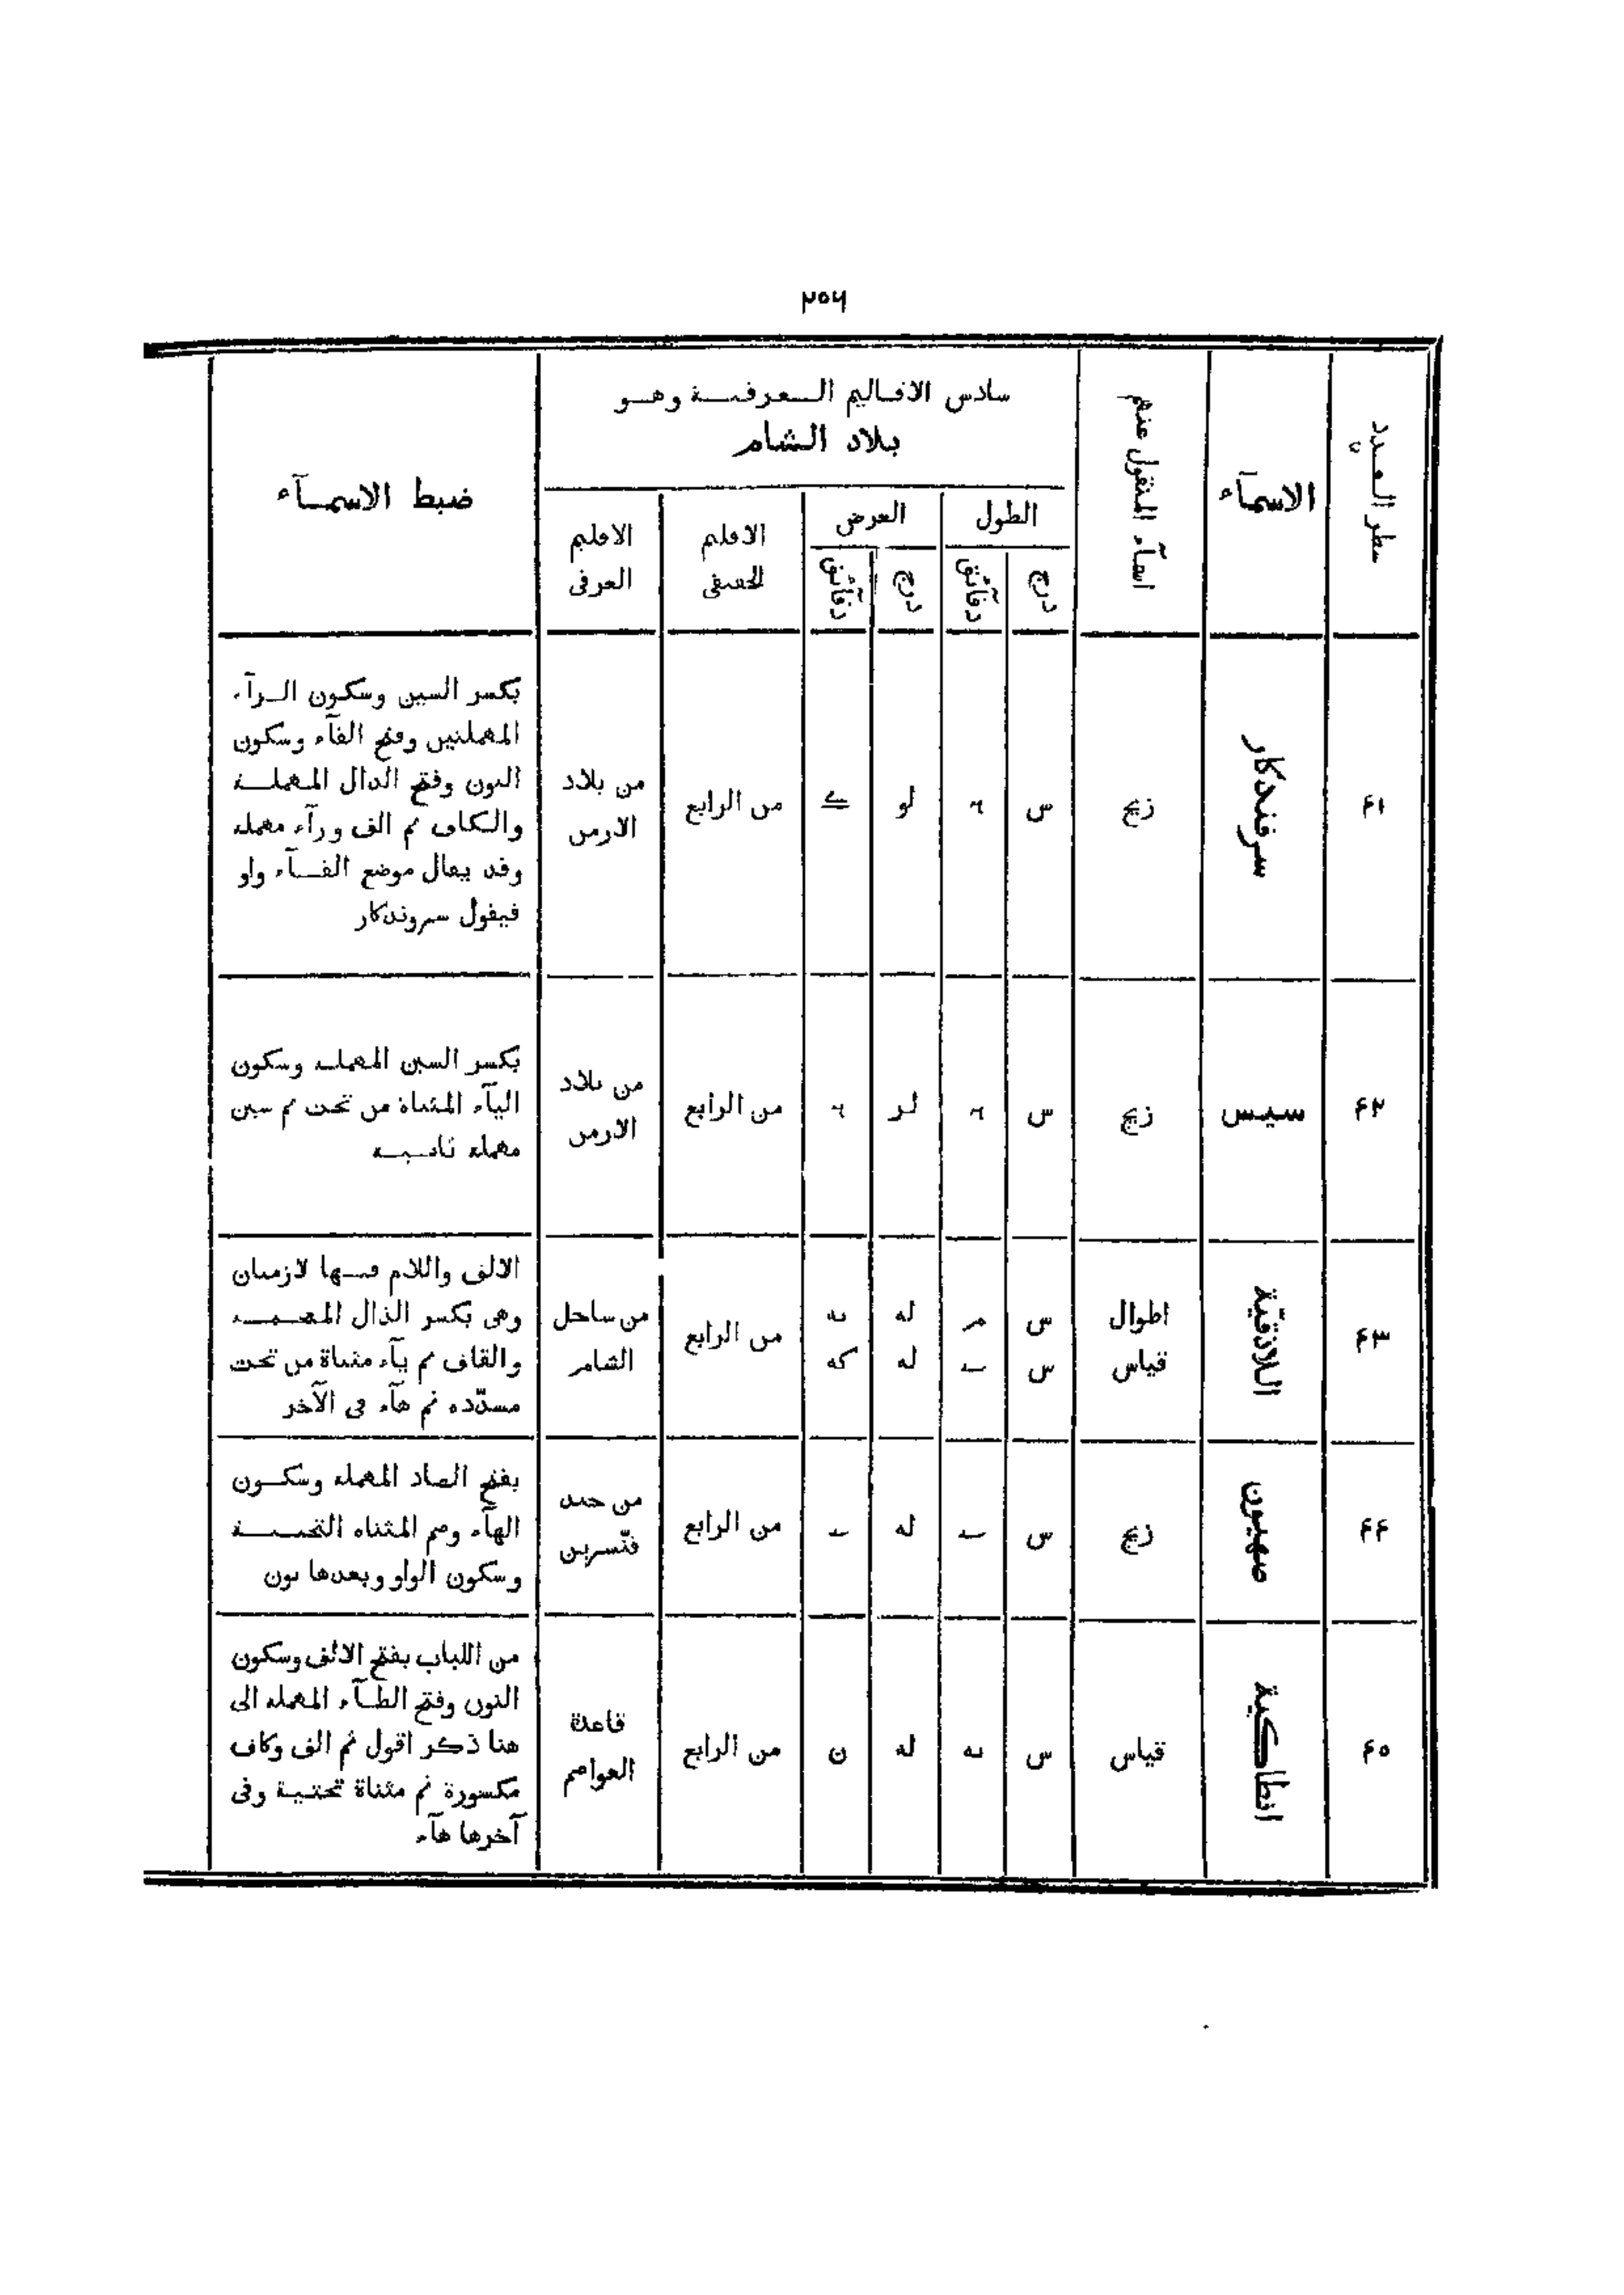 ٢٥٦
سطر العدد
الاسمآء
اسمآء المنقول عنهم
سادس الاقاليم العرفية وهو
بلاد الشام
الطول
درج
دقآئق
العرض
درج
دقآئق
الاقليم
الحقيقى
الاقليم
العرفى
ضبط الاسمآء
٤١
سرفندكار
زيج
س
لو
ك
من الرابع
من بلاد
الارمن
بكسر السين وسكون الرآء
المهملتين وفتح الفآء وسكون
النون وفتح الدال المهملة
والكاف ثم الف ورآء مهملة
وقد يقال موضع الفآء واو
فيقول سروندكار
٤٢
سيس
زيج
س
لز
من الرابع
من بلاد
الارمن
بكسر السين المهملة وسكون
اليآء المثناة من تحت ثم سين
مهملة ثانية
٤٣
اللاذقيّة
اطوال
قياس
س
س
م
له
له
كه
من الرابع
من ساحل
الشام
الالف واللام فيها لازمتان
وهى بكسر الذال المعجمة
والقاف ثم يآء مثناة من تحت
مشدّدة ثم هآء فى الآخر
٤٤
صهيون
زيج
س
له
من الرابع
من جند
قنّسرين
بفتح الصاد المهملة وسكون
الهآء وضم المثناة التحتية
وسكون الواو وبعدها نون
٤٥
انطاكية
قياس
س
له
ن
من الرابع
قاعدة
العواصم
من اللباب بفتح الالف وسكون
النون وفتح الطآء المهملة الى
هنا ذكر اقول ثم الف وكاف
مكسورة ثم مثناة تحتية وفى
آخرها هآء